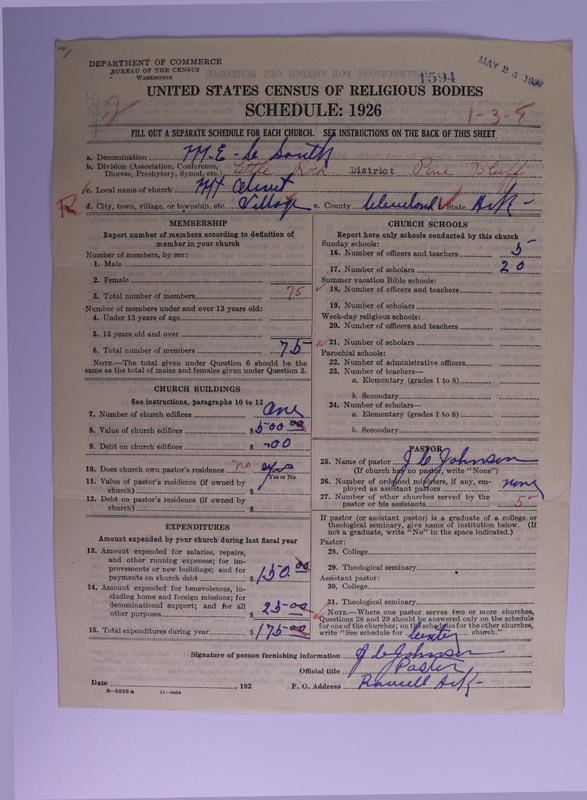 DEPARTMENT OF COMMERCE
BUREAU OF THE CENSUS
WASHINGTON
1594
MAY 24 1927
UNITED STATES CENSUS OF RELIGIOUS BODIES
SCHEDULE: 1926
1-3-5
FILL OUT A SEPARATE SCHEDULE FOR EACH CHURCH. SEE INSTRUCTIONS ON THE BACK OF THIS SHEET
a. Denomination M.E. C South
b. Division (Association, Conference, Diocese, Presbytery, Synod, etc.) Little Rock District Pine Bluff
c. Local name of church Mt Olivet
d. City, town, village, or township, etc. Village e. County Cleveland State Ark
MEMBERSHIP
Report number of members according to definition of member in your church
Number of members, by sex:
1. Male
2. Female
3. Total number of members 75
Number of members under and over 13 years old:
4. Under 13 years of age
5. 13 years old and over
6. Total number of members 75
NOTE.—The total given under Question 6 should be the same as the total of males and females given under Question 3.
CHURCH BUILDINGS
See instructions, paragraphs 10 to 12
7. Number of church edifices One
8. Value of church edifices $ 500 00
9. Debt on church edifices $ 00
10. Does church own pastor's residence no
Yes or No
11. Value of pastor's residence (if owned by church) $
12. Debt on pastor's residence (if owned by church) $
EXPENDITURES
Amount expended by your church during last fiscal year
13. Amount expended for salaries, repairs, and other running expenses; for improvements or new buildings; and for payments on church debt $ 150.00
14. Amount expended for benevolences, including home and foreign missions; for denominational support; and for all other purposes $ 25.00
15. Total expenditures during year $ 175.00
CHURCH SCHOOLS
Report here only schools conducted by this church
Sunday schools:
16. Number of officers and teachers 5
17. Number of scholars 20
Summer vacation Bible schools:
18. Number of officers and teachers
19. Number of scholars
Week-day religious schools:
20. Number of officers and teachers
21. Number of scholars
Parochial schools:
22. Number of administrative officers
23. Number of teachers—
a. Elementary (grades 1 to 8)
b. Secondary
24. Number of scholars—
a. Elementary (grades 1 to 8)
b. Secondary
PASTOR
25. Name of pastor J C Johnson
(If church has no pastor, write "None")
26. Number of ordained ministers, if any, employed as assistant pastors none
27. Number of other churches served by the pastor or his assistants 5
If pastor (or assistant pastor) is a graduate of a college or theological seminary, give name of institution below. (If not a graduate, write "No" in the space indicated.)
Pastor:
28. College
29. Theological seminary
Assistant pastor:
30. College
31. Theological seminary
NOTE.—Where one pastor serves two or more churches, Questions 28 and 29 should be answered only on the schedule for one of the churches; on the schedules for the other churches, write "See schedule for Center church."
Signature of person furnishing information J C Johnson
Official title Pastor
Date , 192 P. O. Address Rowell Ark
8-5518 a 11-9034